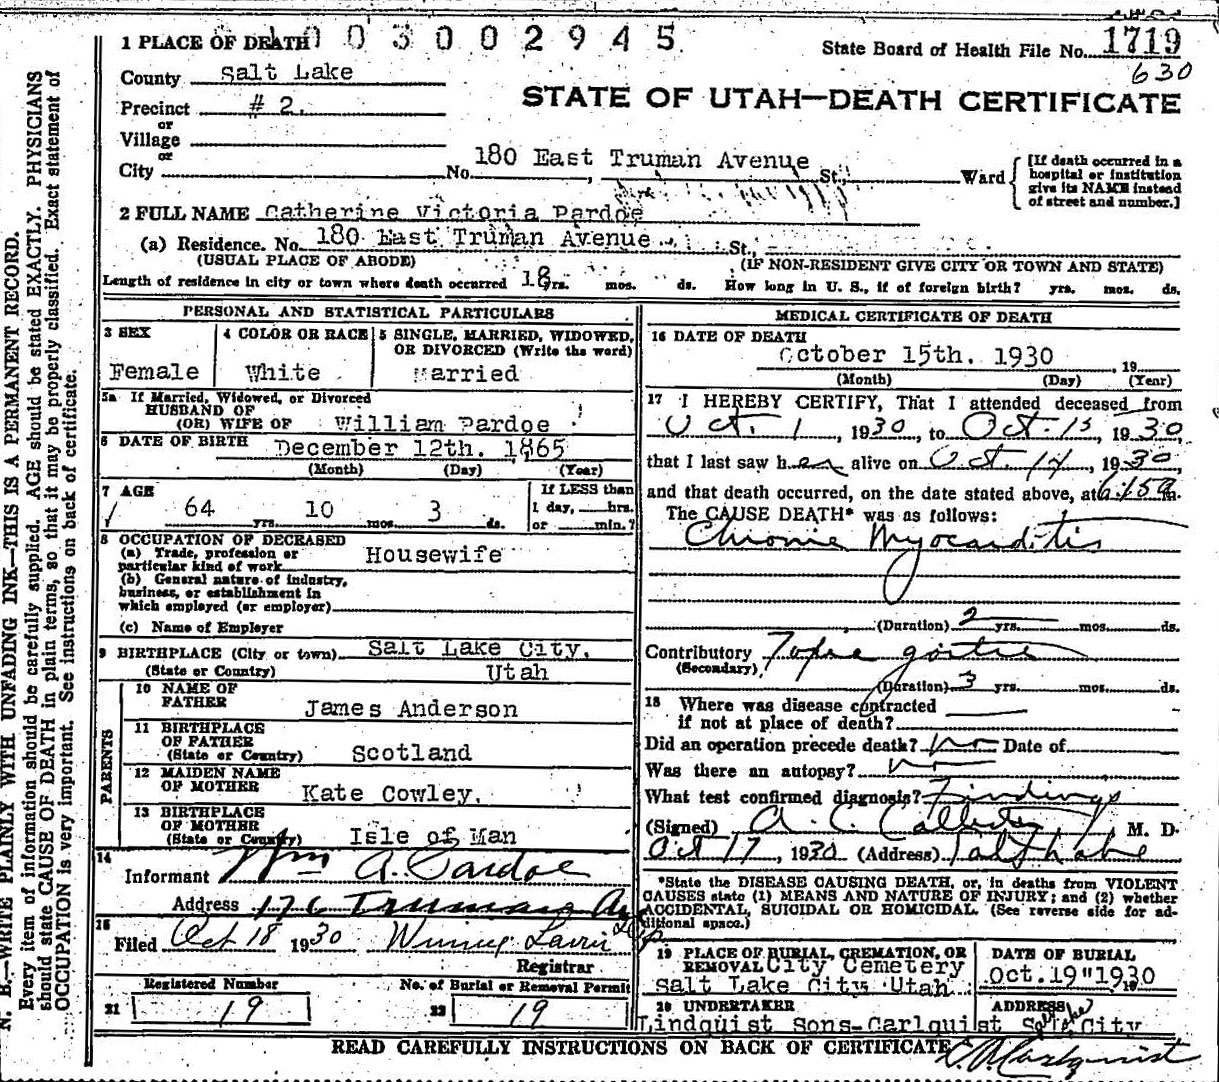 1 PLACE OF DEATH 003002945
State Board of Health File No. 1719
630
County Salt Lake
STATE OF UTAH—DEATH CERTIFICATE
Precinct # 2.
or
Village
or
City No. 180 East Truman Avenue St., Ward
[If death occurred in a
hospital or institution
give its NAME instead
of street and number.]
2 FULL NAME Catherine Victoria Pardoe
(a) Residence. No. 180 East Truman Avenue St.,
(USUAL PLACE OF ABODE) (IF NON-RESIDENT GIVE CITY OR TOWN AND STATE)
Length of residence in city or town where death occurred 18 yrs. mos. ds. How long in U. S., if of foreign birth? yrs. mos. ds.
PERSONAL AND STATISTICAL PARTICULARS
3 SEX
Female
4 COLOR OR RACE
White
5 SINGLE, MARRIED, WIDOWED,
OR DIVORCED (Write the word)
Married
5a If Married, Widowed, or Divorced
HUSBAND OF
(OR) WIFE OF William Pardoe
6 DATE OF BIRTH December 12th. 1865
(Month) (Day) (Year)
7 AGE
64 yrs. 10 mos. 3 ds.
If LESS than
1 day, hrs.
or min.?
8 OCCUPATION OF DECEASED
(a) Trade, profession or
particular kind of work Housewife
(b) General nature of industry,
business, or establishment in
which employed (or employer)
(c) Name of Employer
9 BIRTHPLACE (City or town) Salt Lake City,
(State or Country) Utah
PARENTS
10 NAME OF
FATHER James Anderson
11 BIRTHPLACE
OF FATHER
(State or Country) Scotland
12 MAIDEN NAME
OF MOTHER Kate Cowley.
13 BIRTHPLACE
OF MOTHER
(State or Country) Isle of Man
14
Informant Wm A. Pardoe
Address 176 Truman Av
15
Filed Oct 18 1930
Registrar
Registered Number
21 19
No. of Burial or Removal Permit
22 19
MEDICAL CERTIFICATE OF DEATH
16 DATE OF DEATH
October 15th. 1930, 19
(Month) (Day) (Year)
17 I HEREBY CERTIFY, That I attended deceased from
Oct. 1, 1930, to Oct. 15, 1930,
that I last saw her alive on Oct. 14, 1930,
and that death occurred, on the date stated above, at 6:15 a m.
The CAUSE DEATH* was as follows:
Chronic Myocarditis
(Duration) 2 yrs. mos. ds.
Contributory
(Secondary)
(Duration) 3 yrs. mos. ds.
18 Where was disease contracted
if not at place of death?
Did an operation precede death? no Date of
Was there an autopsy? no
What test confirmed diagnosis? Findings
(Signed) A. C. Callister M. D.
Oct 17, 1930 (Address) Salt Lake
*State the DISEASE CAUSING DEATH, or, in deaths from VIOLENT
CAUSES state (1) MEANS AND NATURE OF INJURY; and (2) whether
ACCIDENTAL, SUICIDAL OR HOMICIDAL. (See reverse side for ad-
ditional space.)
19 PLACE OF BURIAL, CREMATION, OR
REMOVAL City Cemetery
Salt Lake City Utah
DATE OF BURIAL
Oct.19"1930
20 UNDERTAKER
Lindquist Sons-Carlquist
ADDRESS
Salt Lake City
READ CAREFULLY INSTRUCTIONS ON BACK OF CERTIFICATE
N. B.—WRITE PLAINLY WITH UNFADING INK—THIS IS A PERMANENT RECORD.
Every item of information should be carefully supplied. AGE should be stated EXACTLY. PHYSICIANS
should state CAUSE OF DEATH in plain terms, so that it may be properly classified. Exact statement of
OCCUPATION is very important. See instructions on back of certificate.